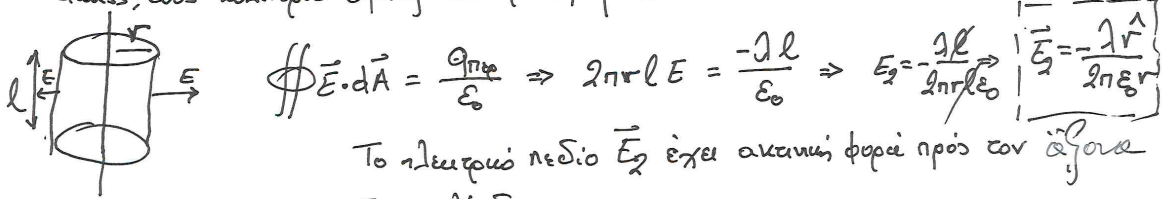 r
l E E ∯ E⃗·dA⃗ = qπερ/ε₀ ⇒ 2πrlE = -λl/ε₀ ⇒ E₂ = -λl/2πrlε₀ ⇒ E⃗₂ = -λr̂/2πε₀r
Το ηλεκτρικό πεδίο E⃗₂ έχει ακτινική φορά πρός τον άξονα